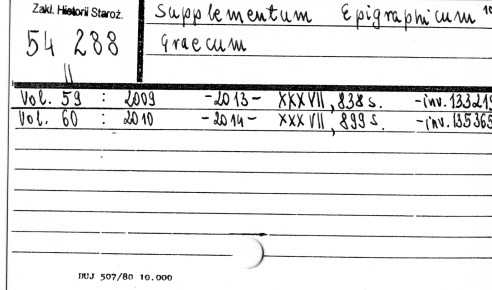 Zakł. Historii Staroż.
Supplementum Epigraphicum 10
54 288
Graecum
II
Vol. 59 : 2009 -2013- XXXVII, 838 s. -inv. 133219
Vol. 60 : 2010 -2014- XXXVII, 899 s. -inv. 135365
DUJ 507/80 10.000